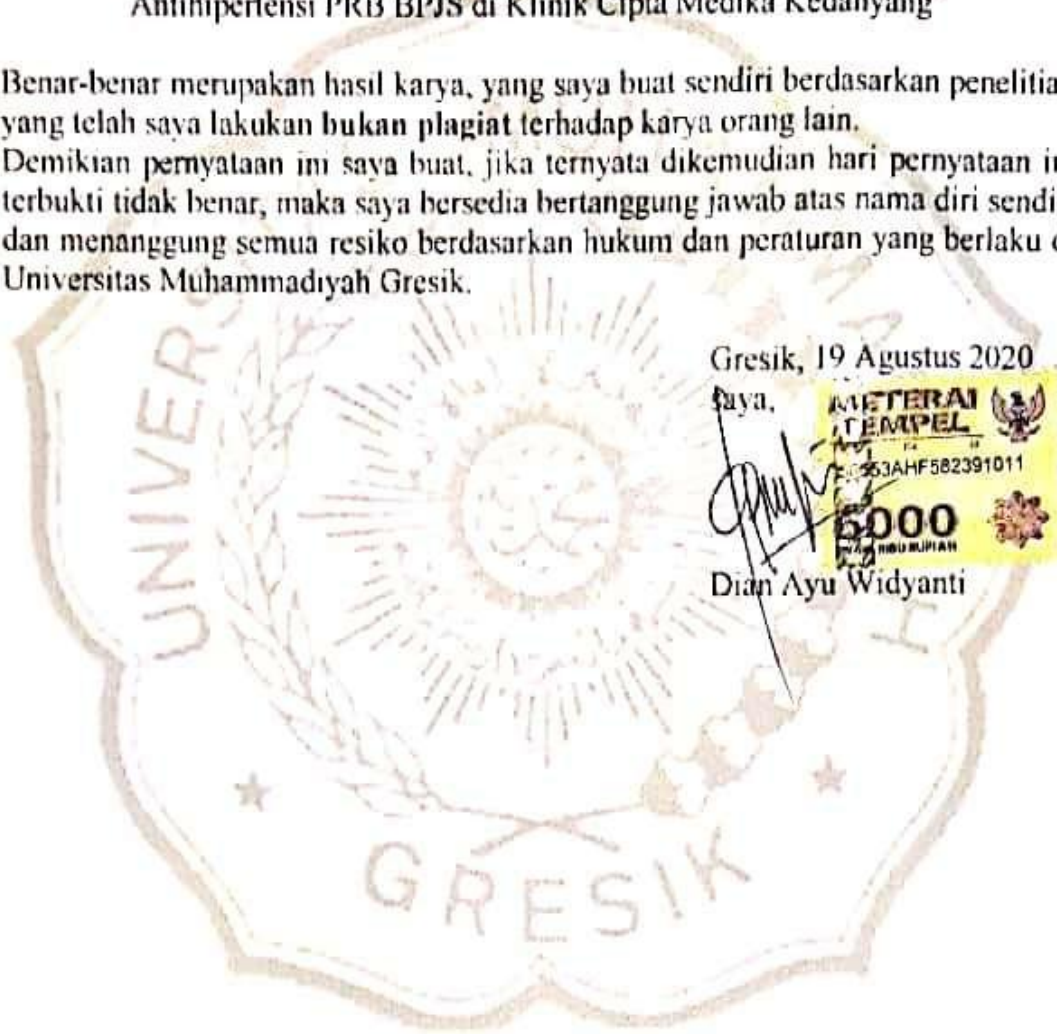 Antihipertensi PRB BPJS di Klinik Cipta Medika Kedanyang
Benar-benar merupakan hasil karya, yang saya buat sendiri berdasarkan penelitia
yang telah saya lakukan bukan plagiat terhadap karya orang lain.
Demikian pernyataan ini saya buat, jika ternyata dikemudian hari pernyataan in
terbukti tidak benar, maka saya bersedia bertanggung jawab atas nama diri sendi
dan menanggung semua resiko berdasarkan hukum dan peraturan yang berlaku d
Universitas Muhammadiyah Gresik.
Gresik, 19 Agustus 2020
Saya,
METERAI
TEMPEL
53AHF582391011
6000
RIBU RUPIAH
Dian Ayu Widyanti
UNIVERS
H
GRESIK